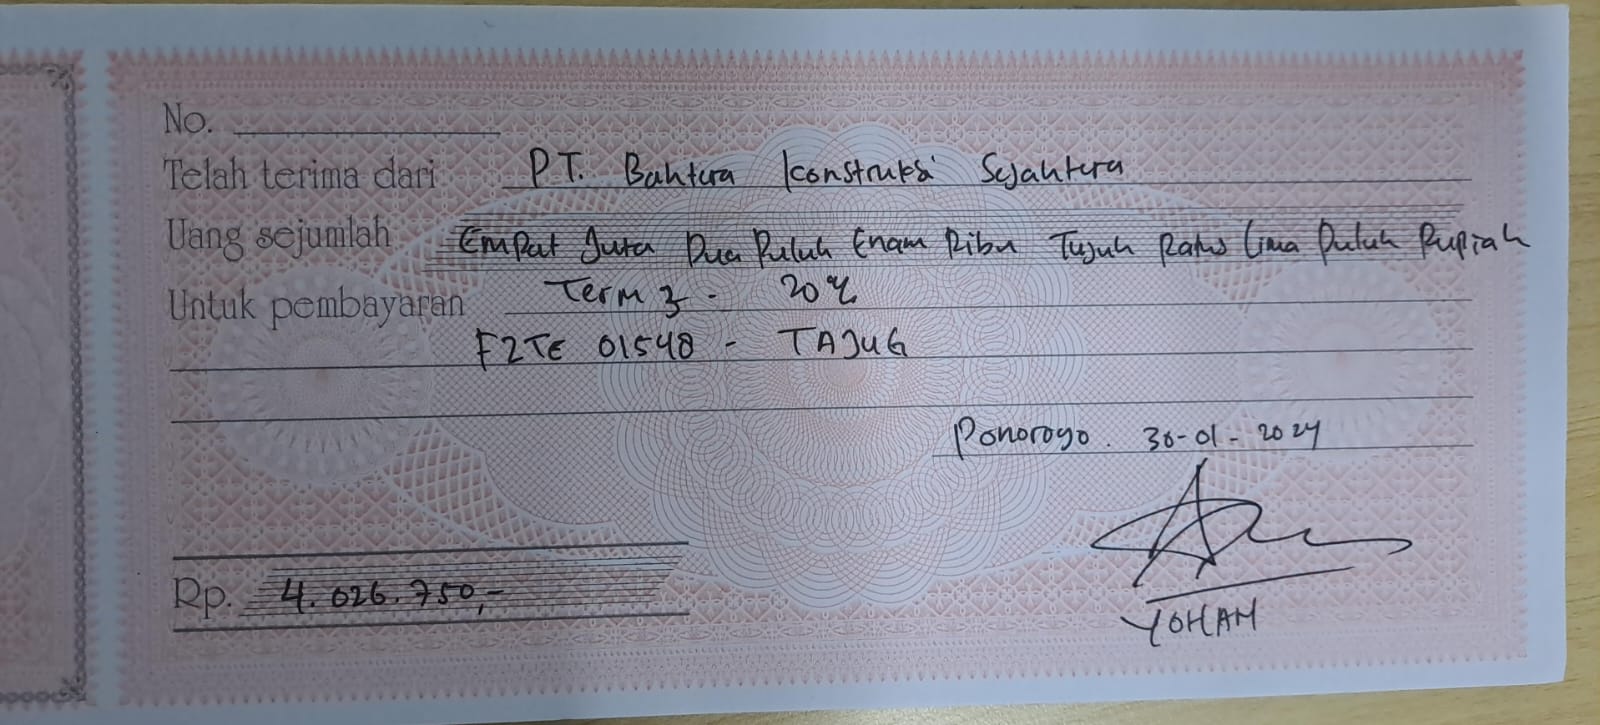 No.
Telah terima dari PT. Bahtera Konstruksi Sejahtera
Uang sejumlah Empat Juta Dua Puluh Enam Ribu Tujuh Ratus Lima Puluh Rupiah
Untuk pembayaran Term 3 - 20%
F2TE 01548 - TAJUG
Ponorogo. 30-01-2024
Rp. 4.026.750,-
YOHAN